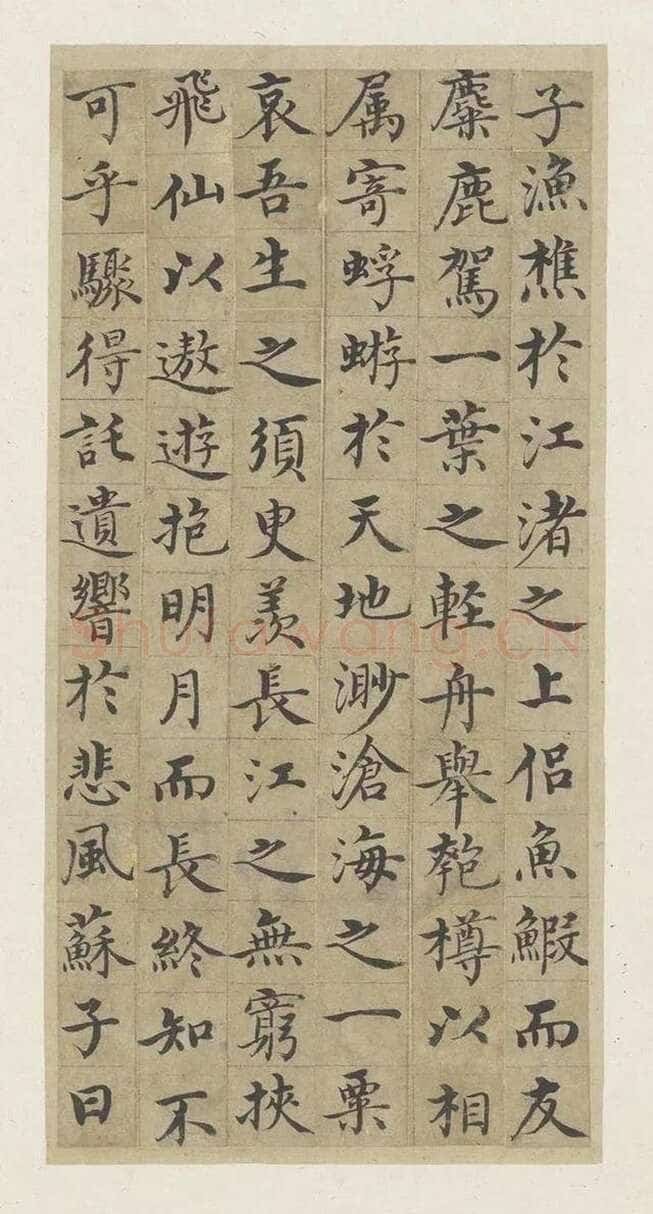 子漁樵於江渚之上侣魚鰕而友
麋鹿駕一葉之軽舟舉匏樽以相
属寄蜉蝣於天地渺滄海之一粟
哀吾生之須臾羨長江之無窮挾
飛仙以遨遊抱明月而長終知不
可乎驟得託遺響於悲風蘇子曰
shufawang.CN